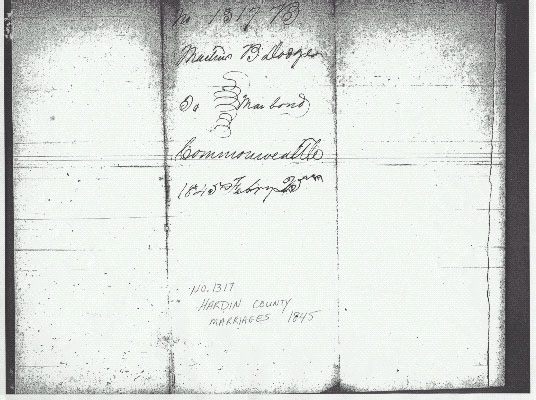 No 1317 B
Martin B Dodge
To Mar bond
Commonwealth
1845 Febry 23rd
NO. 1317
HARDIN COUNTY
MARRIAGES 1845